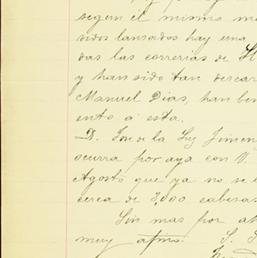 segun el mismo me
nidos lansados hay una
das las correrias de
y han sido tan descar
Manuel Dias, han ben
ento á esta.
D. Jose de la Luz Jimen
ocurra por aya con
Agosto que ya no se
cerca de 3,000 cabesas
Sin mas por
muy atmo. S. S.